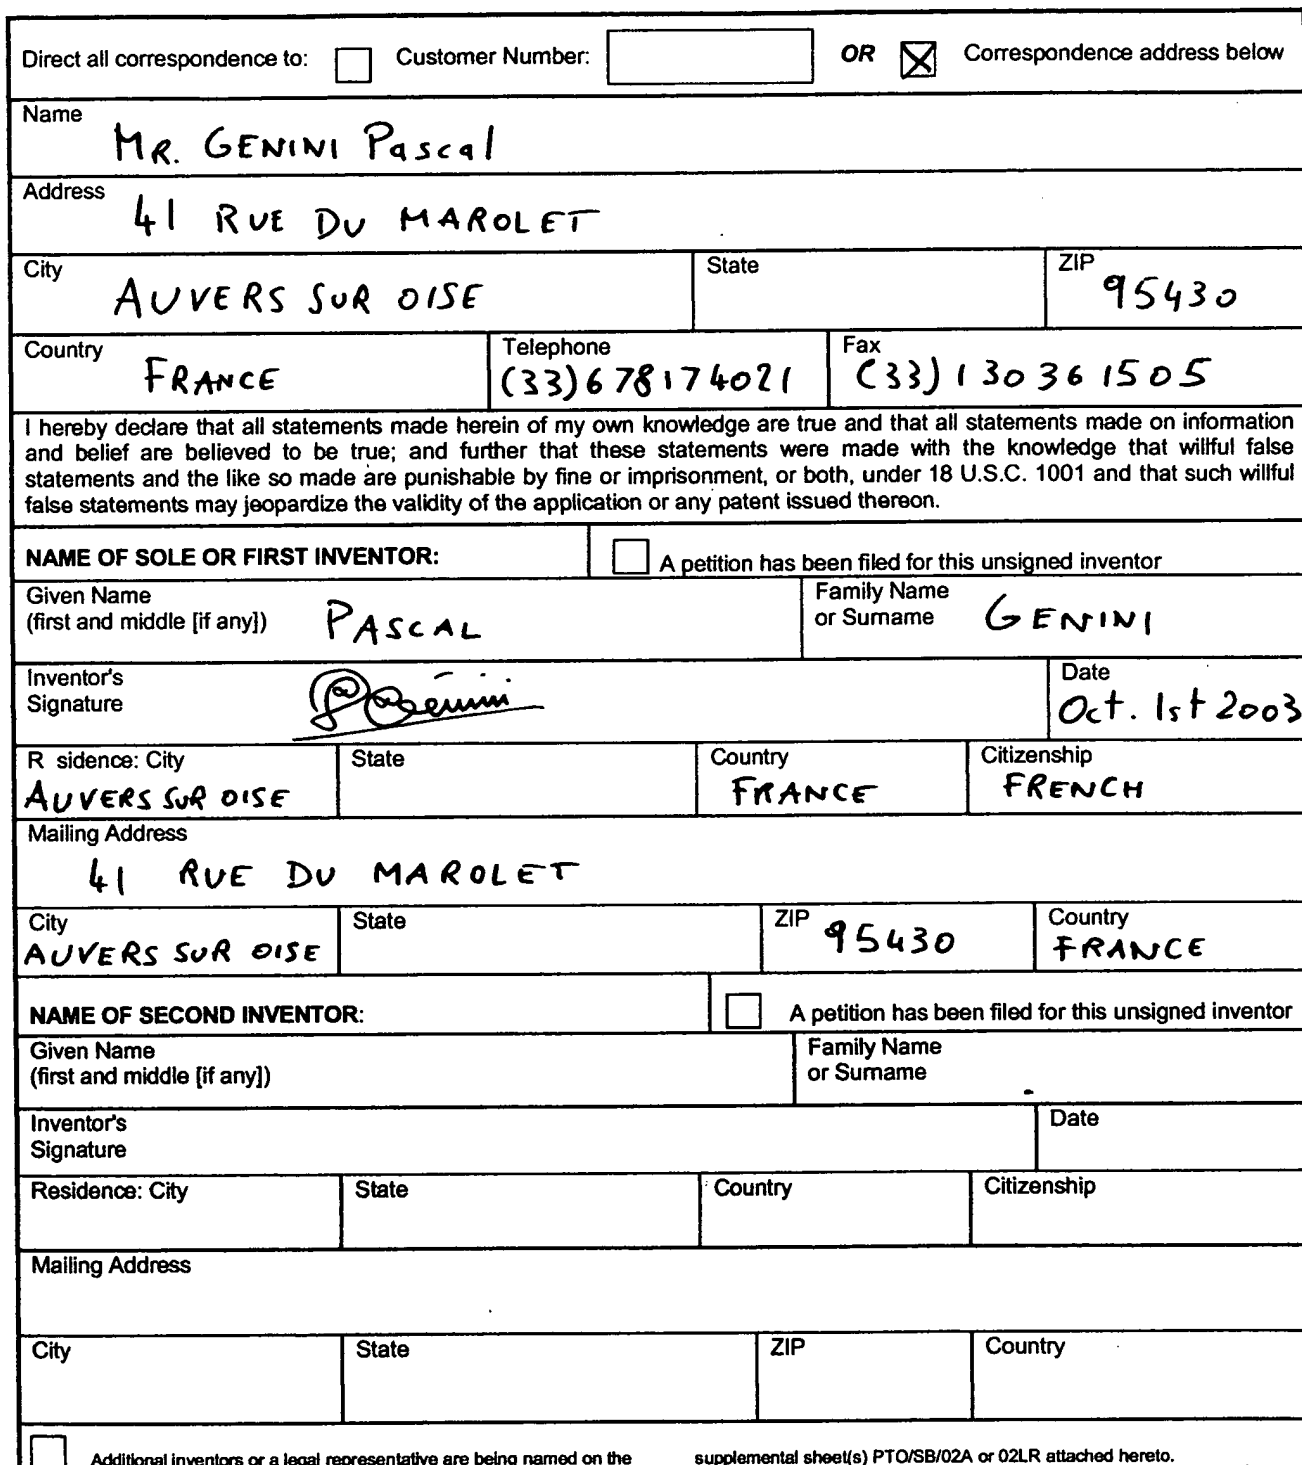 Direct all correspondence to: Customer Number: OR Correspondence address below
Name
MR. GENINI Pascal
Address
41 RUE DU MAROLET
City State ZIP
AUVERS SUR OISE 95430
Country Telephone Fax
FRANCE (33)678174021 (33)130361505
I hereby declare that all statements made herein of my own knowledge are true and that all statements made on information
and belief are believed to be true; and further that these statements were made with the knowledge that willful false
statements and the like so made are punishable by fine or imprisonment, or both, under 18 U.S.C. 1001 and that such willful
false statements may jeopardize the validity of the application or any patent issued thereon.
NAME OF SOLE OR FIRST INVENTOR: A petition has been filed for this unsigned inventor
Given Name Family Name
(first and middle [if any]) PASCAL or Surname GENINI
Inventor's Date
Signature PGénini Oct. 1st 2003
R sidence: City State Country Citizenship
AUVERS SUR OISE FRANCE FRENCH
Mailing Address
41 RUE DU MAROLET
City State ZIP 95430 Country
AUVERS SUR OISE FRANCE
NAME OF SECOND INVENTOR: A petition has been filed for this unsigned inventor
Given Name Family Name
(first and middle [if any]) or Surname
Inventor's Date
Signature
Residence: City State Country Citizenship
Mailing Address
City State ZIP Country
Additional inventors or a legal representative are being named on the supplemental sheet(s) PTO/SB/02A or 02LR attached hereto.